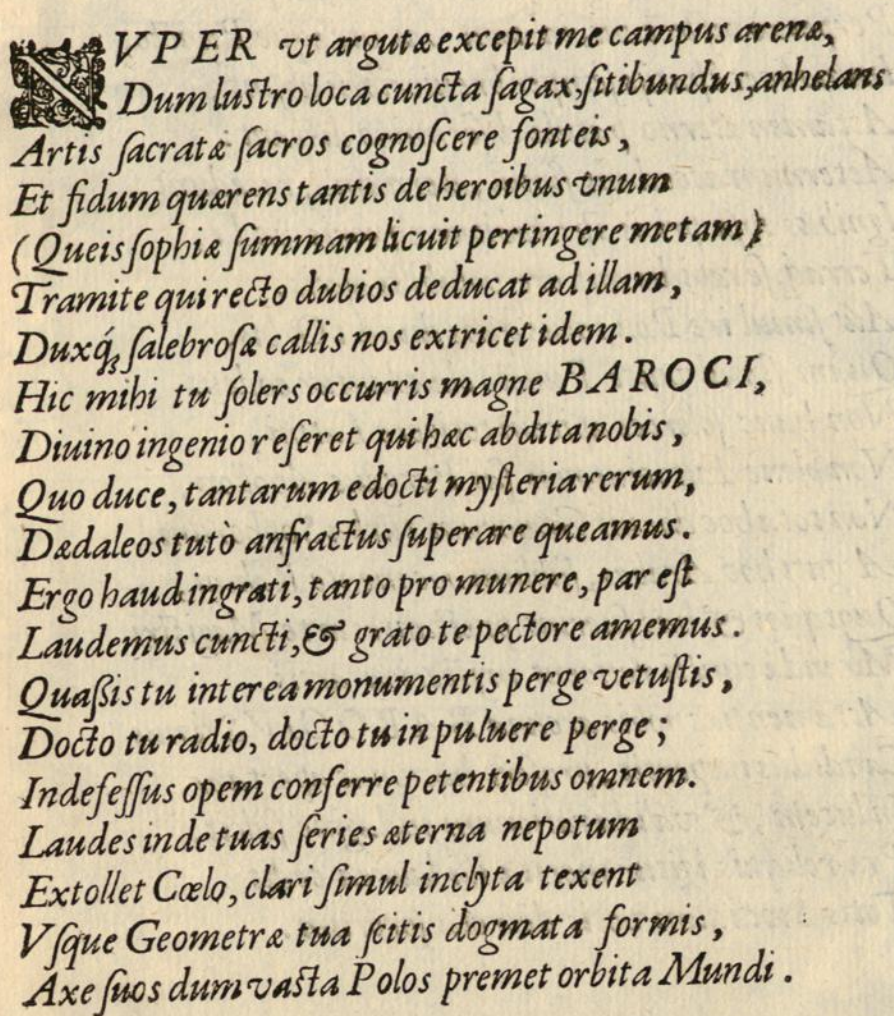 NVPER vt argutæ excepit me campus arenæ,
Dum lustro loca cuncta sagax, sitibundus, anhelans
Artis sacratæ sacros cognoscere fonteis,
Et fidum quærens tantis de heroibus vnum
(Queis sophiæ summam licuit pertingere metam)
Tramite qui recto dubios deducat ad illam,
Duxq́; salebrosæ callis nos extricet idem.
Hic mihi tu solers occurris magne BAROCI,
Diuino ingenio reseret qui hæc abdita nobis,
Quo duce, tantarum edocti mysteria rerum,
Dædaleos tutò anfractus superare queamus.
Ergo haud ingrati, tanto pro munere, par est
Laudemus cuncti, & grato te pectore amemus.
Quassis tu interea monumentis perge vetustis,
Docto tu radio, docto tu in puluere perge;
Indefessus opem conferre petentibus omnem.
Laudes inde tuas series æterna nepotum
Extollet Cœlo, clari simul inclyta texent
Vsque Geometræ tua scitis dogmata formis,
Axe suos dum vasta Polos premet orbita Mundi.